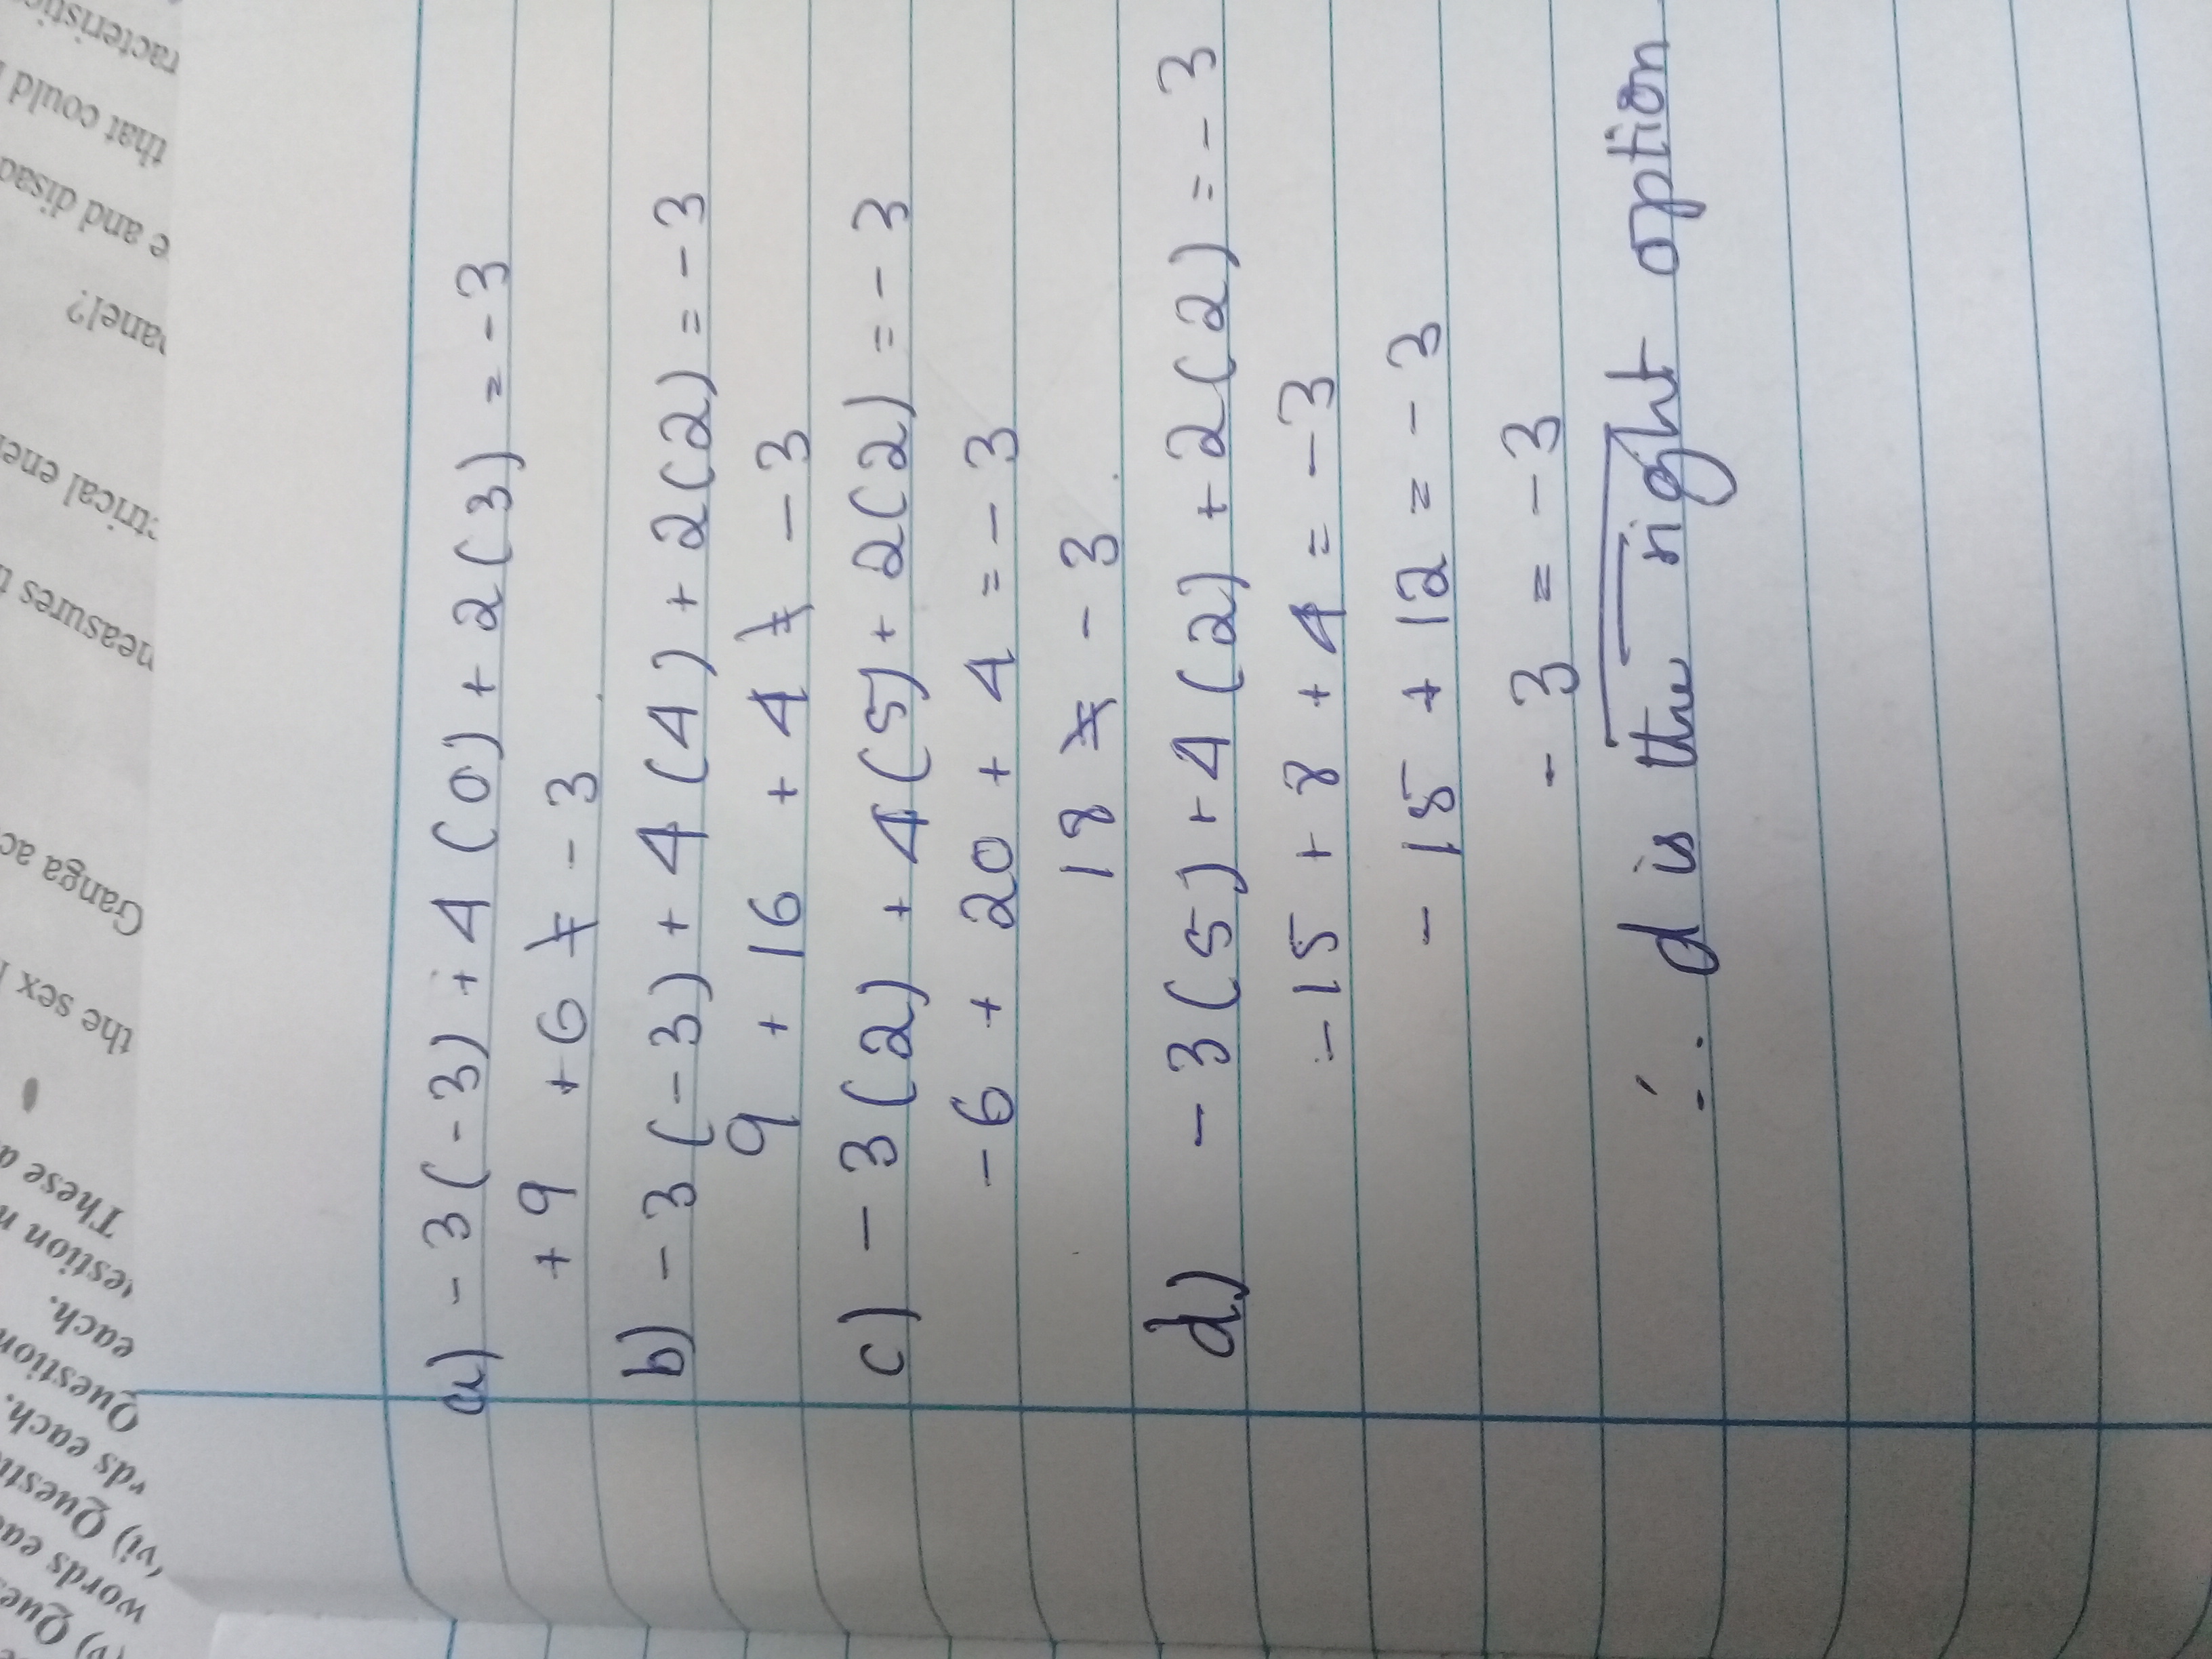 a) -3(-3) + 4(0) + 2(3) = -3
+9 +6 ≠ -3
b) -3(-3) + 4(4) + 2(2) = -3
9 + 16 + 4 ≠ -3
c) -3(2) + 4(5) + 2(2) = -3
-6 + 20 + 4 = -3
18 ≠ -3
d) -3(5) + 4(2) + 2(2) = -3
-15 + 8 + 4 = -3
-15 + 12 = -3
-3 = -3
∴ d is the right option
that could
e and disad
anel?
trical ene
measures t
Ganga ac
the sex
These a
estion n
each.
Question
rds each.
(vi) Questi
words eac
(v) Ques